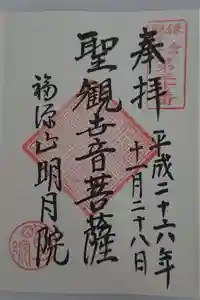 奉拝
平成二十六年
十一月二十八日
聖観世音菩薩
福源山明月院